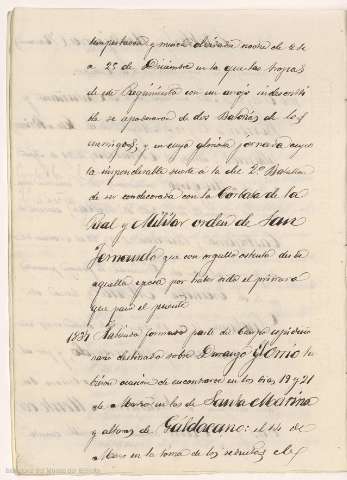 tempestuosa y nunca olvidada noche de 24
a 25 de Diciembre en la que las tropas
de este Regimiento con un arrojo indescripti
ble se apoderaron de dos Baterías de los
enemigos; y en cuya gloriosa jornada cupo
la imponderable suerte a la del 2º Batallon
de ser condecorada con la Corbata de la
Real y Militar orden de San
Fernando que con orgullo ostenta desde
aquella epoca por haber sido el primero
que pasó el puente
1837 Habiendo formado parte de Cuerpo espedicio
nario destinado sobre Durango y Elorrio tu
bieron ocasion de encontrarse en los dias 19 y 21
de Marzo en las de Santa Marina
y alturas de Galdacano: el 14 de
Mayo en la toma de los reductos el
Biblioteca del Museo del Ejército